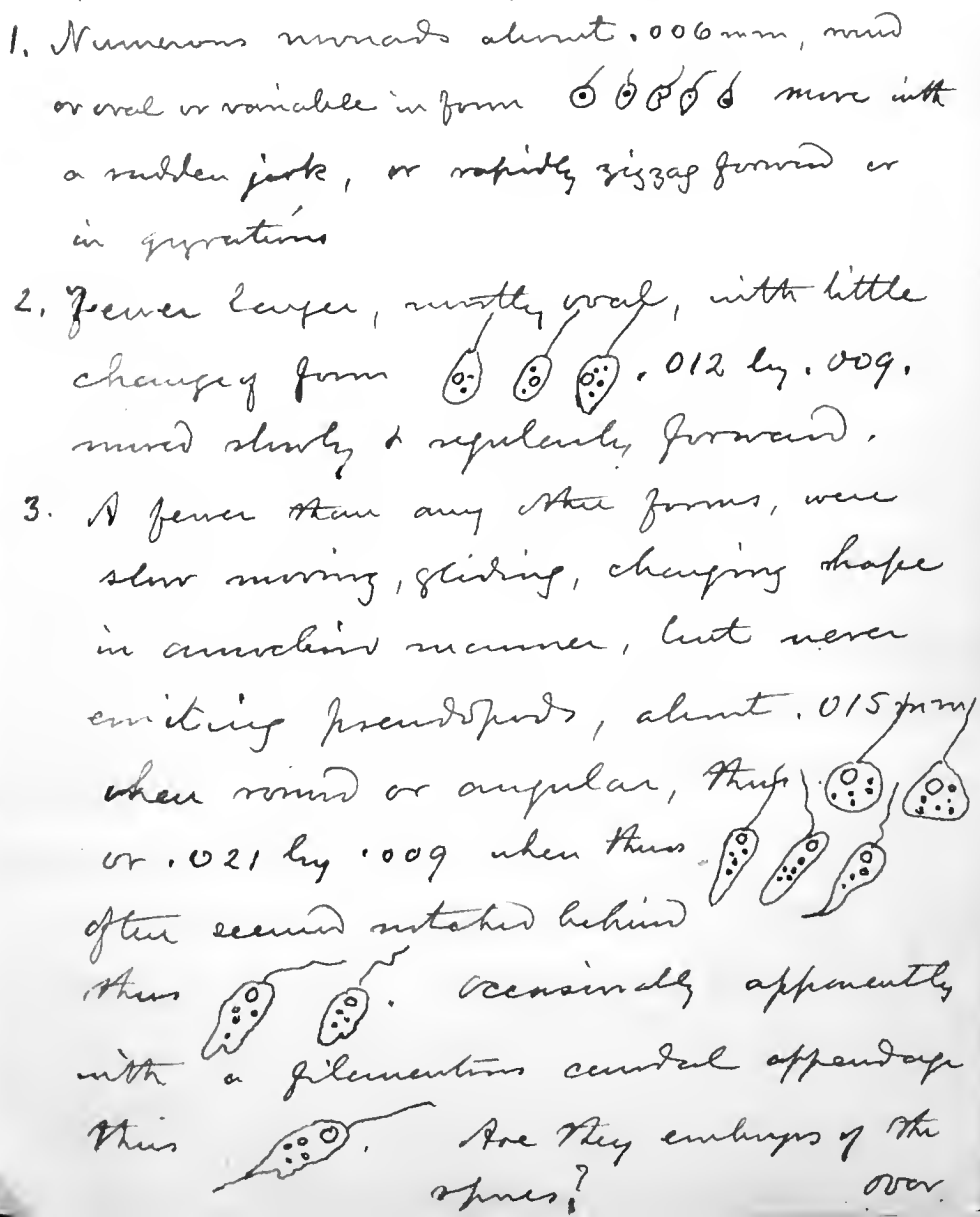 1. Numerous monads about .006 mm, round
or oval or variable in form move with
a sudden jerk, or rapidly zigzag forward or
in gyrations
2. Fewer larger, mostly oval, with little
change of form .012 by .009.
moved slowly & regularly forward.
3. A fewer than any other forms, were
slow moving, gliding, changing shape
in amoeboid manner, but never
emitting pseudopods, about .015 mm
when round or angular, thus
or .021 by .009 when thus
often seemed notched behind
thus . Occasionally apparently
with a filamentous caudal appendage
thus . Are they embryos of the
spores? over.